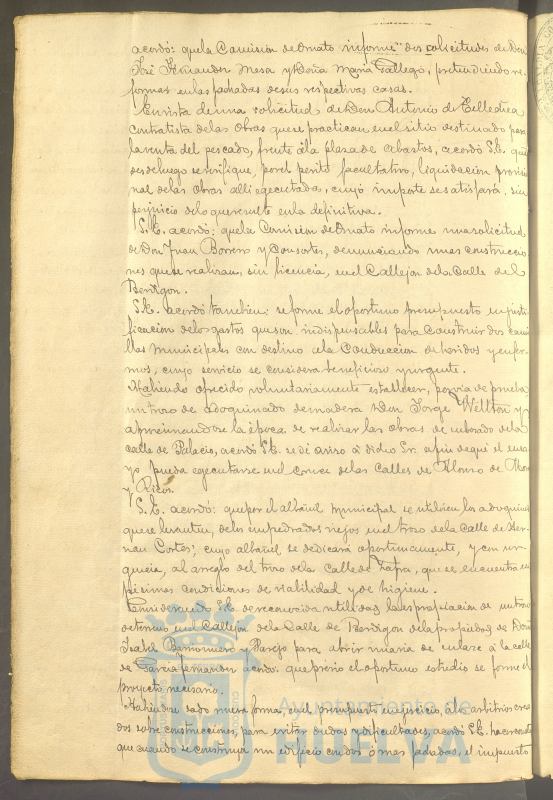 acordó: que la Comisión de Ornato informe dos solicitudes de Don
José Fernandez Mesa y Doña Maria Gallego, pretendiendo re-
formas en las fachadas de sus respectivas casas.
En vista de una solicitud de Don Antonio de Tellechea
contratista de las obras que se practican en el sitio destinado para
la venta del pescado, frente á la plaza de abastos, acordó S.E. que
desde luego se verifique, por el perito facultativo, liquidación provisio
nal de las obras alli ejecutadas, cuyo importe se satisfará, sin
perjuicio de lo que resulte en la definitiva.
S.E. acordó: que la Comisión de Ornato informe una solicitud
de Don Juan Borrero y Consortes, denunciando unas construccio
nes que se realizan, sin licencia, en el Callejon de la Calle del
Berdigon.
S.E. acordó tambien: se forme el oportuno presupuesto en justi
ficación de los gastos que son indispensables para construir dos cami
llas municipales con destino á la conducción de heridos y enfer-
mos, cuyo servicio se considera beneficioso y urgente.
Habiendo ofrecido voluntariamente establecer, por via de prueba
un trozo de adoquinado de madera Don Jorge Wellton y
aproximandose la época de realizar las obras de enlosado de la
calle de Palacio, acordó S.E. se dé aviso á dicho Sr. a fin de que el ensa
yo pueda ejecutarse en el cruce de las calles de Alonso de Mora
y Ricos.
S.E. acordó: que por el albañil municipal se utilicen los adoquines
que se levanten, de los empedrados viejos en el trozo de la Calle de Her-
nan Cortés; cuyo albañil se dedicará oportunamente, y con ur-
gencia, al arreglo del trozo de la calle de Zafra, que se encuentra en
pesimas condiciones de viabilidad y de higiene.
Considerando S.E. de reconocida utilidad la expropiación de un trozo
de terreno en el Callejon de la Calle de Berdigon de la propiedad de Doña
Isabel Barromero y Parejo para abrir una via de enlace á la calle
de Garcia fernandez acordó: que previo el oportuno estudio se forme el
proyecto necesario.
Habiendose dado nueva forma, en el presupuesto en ejercicio, á los arbitrios crea
dos sobre construcciones, para evitar dudas y dificultades, acordó S.E. hacer constar
que cuando se construya un edificio con dos ó mas fachadas, el impuesto
Ayuntamiento de
HUELVA